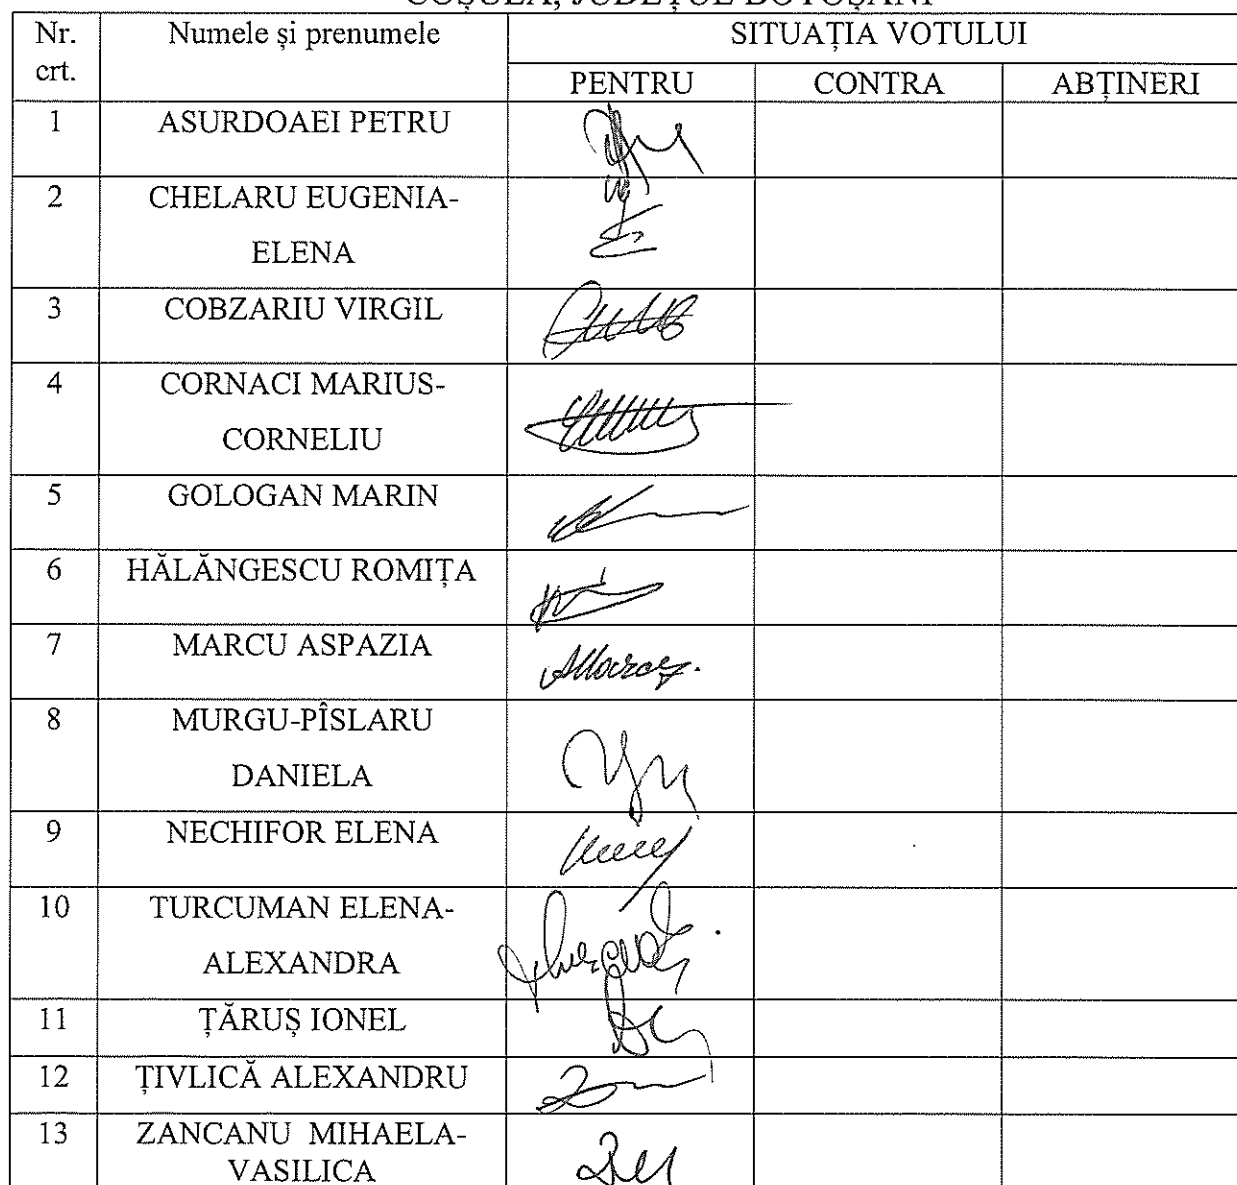 COȘULA, JUDEȚUL BOTOȘANI
Nr. crt. Numele și prenumele SITUAȚIA VOTULUI
PENTRU CONTRA ABȚINERI
1 ASURDOAEI PETRU
2 CHELARU EUGENIA-
ELENA
3 COBZARIU VIRGIL
4 CORNACI MARIUS-
CORNELIU
5 GOLOGAN MARIN
6 HĂLĂNGESCU ROMIȚA
7 MARCU ASPAZIA
8 MURGU-PÎSLARU
DANIELA
9 NECHIFOR ELENA
10 TURCUMAN ELENA-
ALEXANDRA
11 ȚĂRUȘ IONEL
12 ȚIVLICĂ ALEXANDRU
13 ZANCANU MIHAELA-
VASILICA